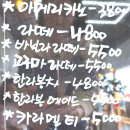 * 아메리카노-380
* 라떼-4800
* 바닐라라떼-5500
* 모카라떼-5500
* 한라봉차-4800
* 한라봉에이드-5800
* 카라멜티-5000